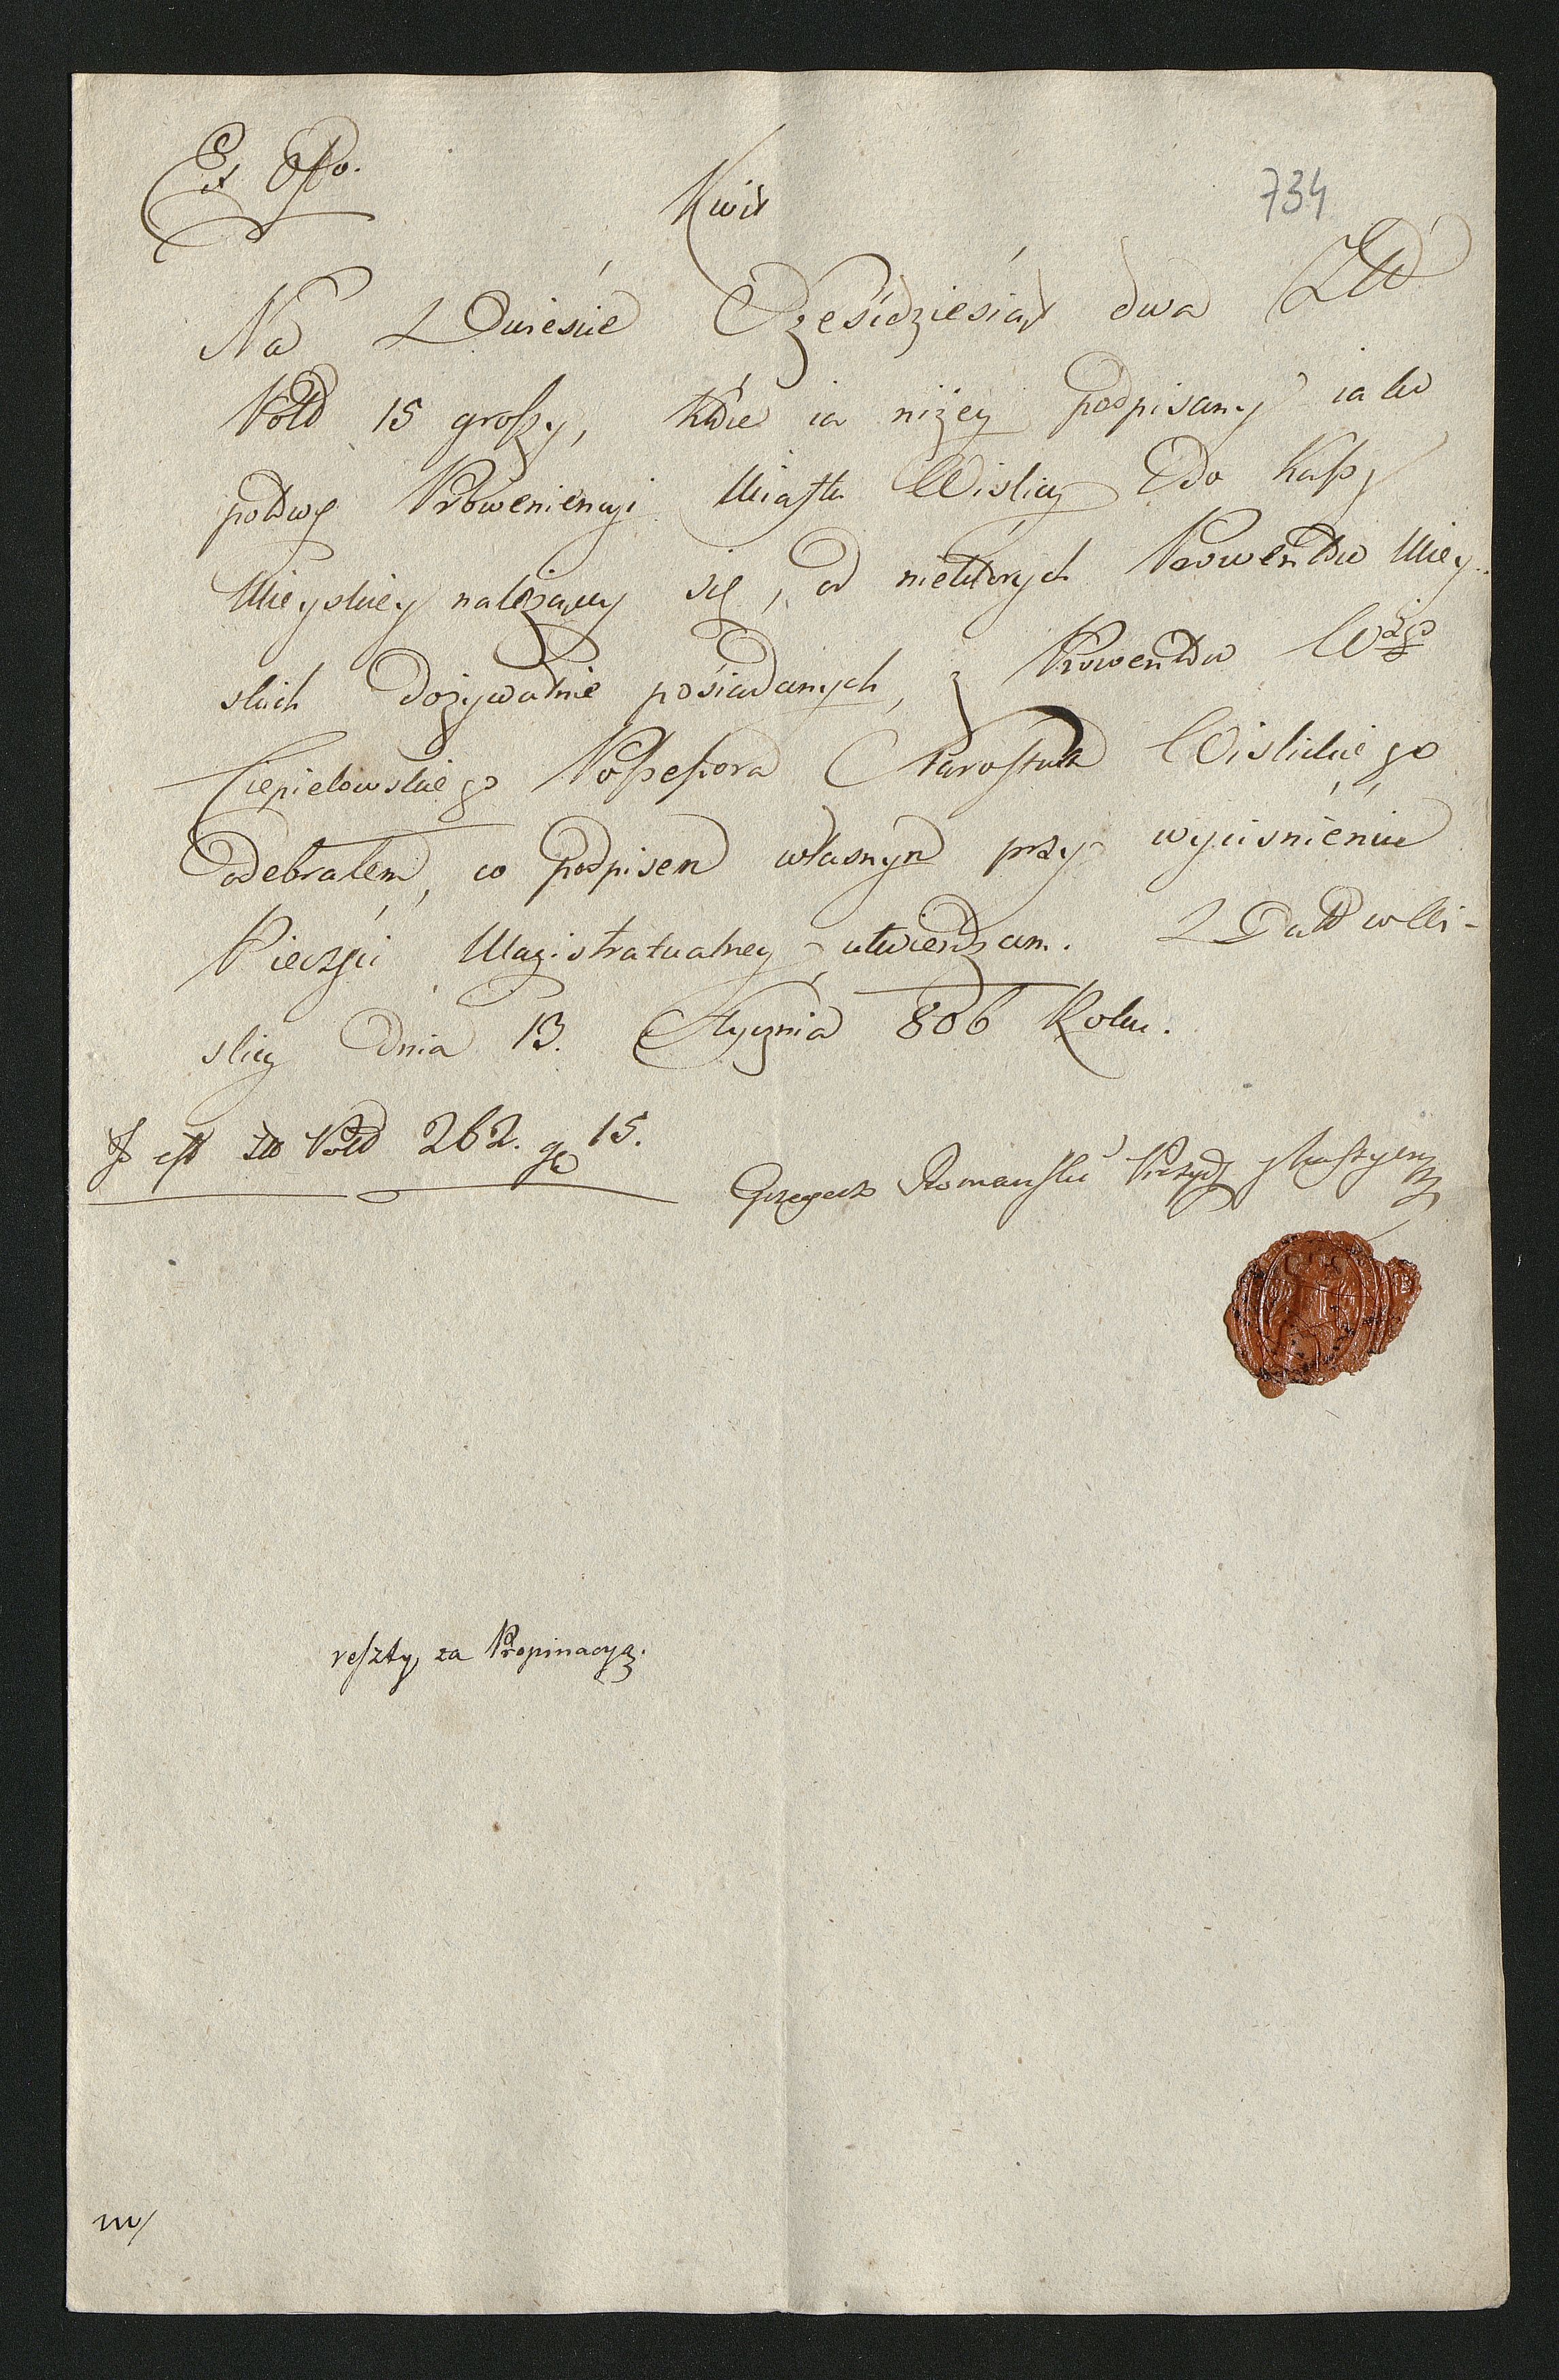 Ex Offo.
Kwit
734
Na Dwieście Sześćdziesiąt dwa Złł
Polld 15 groszy, które ia niżey podpisany iako
połowę Proweniencyi Miasta Wiślicy Do Kassy
Mieyskiey należącey się, od niektórych Prowentów Miey-
skich Dożywotnie posiadanych, z Prowentów Wżgo
Ciepielowskiego Possessora Starostwa Wislickiego
odebrałem, co podpisem własnym przy wyciśnieniu
Pieczęci Magistratualney utwierdzam. Datt w Wi-
ślicy Dnia 13. Stycznia 806 Roku.
J est Złł Polld 262. gr 15.
Grzegorz Romański
reszty za Propinacyą.